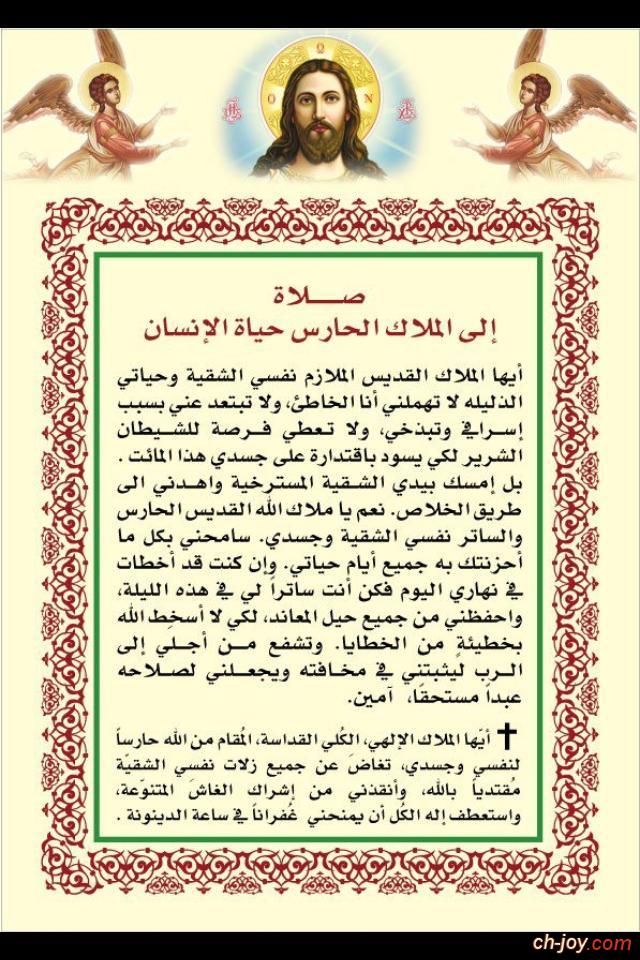 Ο Ω Ν
صـــلاة
إلى الملاك الحارس حياة الإنسان
أيها الملاك القديس الملازم نفسي الشقية وحياتي
الذليله لا تهملني أنا الخاطئ، ولا تبتعد عني بسبب
إسرافي وتبذخي، ولا تعطي فرصة للشيطان
الشرير لكي يسود باقتدارة على جسدي هذا المائت .
بل إمسك بيدي الشقية المسترخية واهدني الى
طريق الخلاص. نعم يا ملاك الله القديس الحارس
والساتر نفسي الشقية وجسدي. سامحني بكل ما
أحزنتك به جميع أيام حياتي. وإن كنت قد أخطات
في نهاري اليوم فكن أنت ساتراً لي في هذه الليلة،
واحفظني من جميع حيل المعاند، لكي لا أسخِط الله
بخطيئةٍ من الخطايا. وتشفع من أجلي إلى
الرب ليثبتني في مخافته ويجعلني لصلاحه
عبداً مستحقًا، آمين.
✝ أيّها الملاك الإلهي، الكُلي القداسة، المُقام من الله حارساً
لنفسي وجسدي، تغاضَ عن جميع زلات نفسي الشقيّة
مُقتدياً بالله، وأنقذني من إشراك الغاشَ المتنوّعة،
واستعطف إله الكُل أن يمنحني غُفراناً في ساعة الدينونة .
ch-joy.com